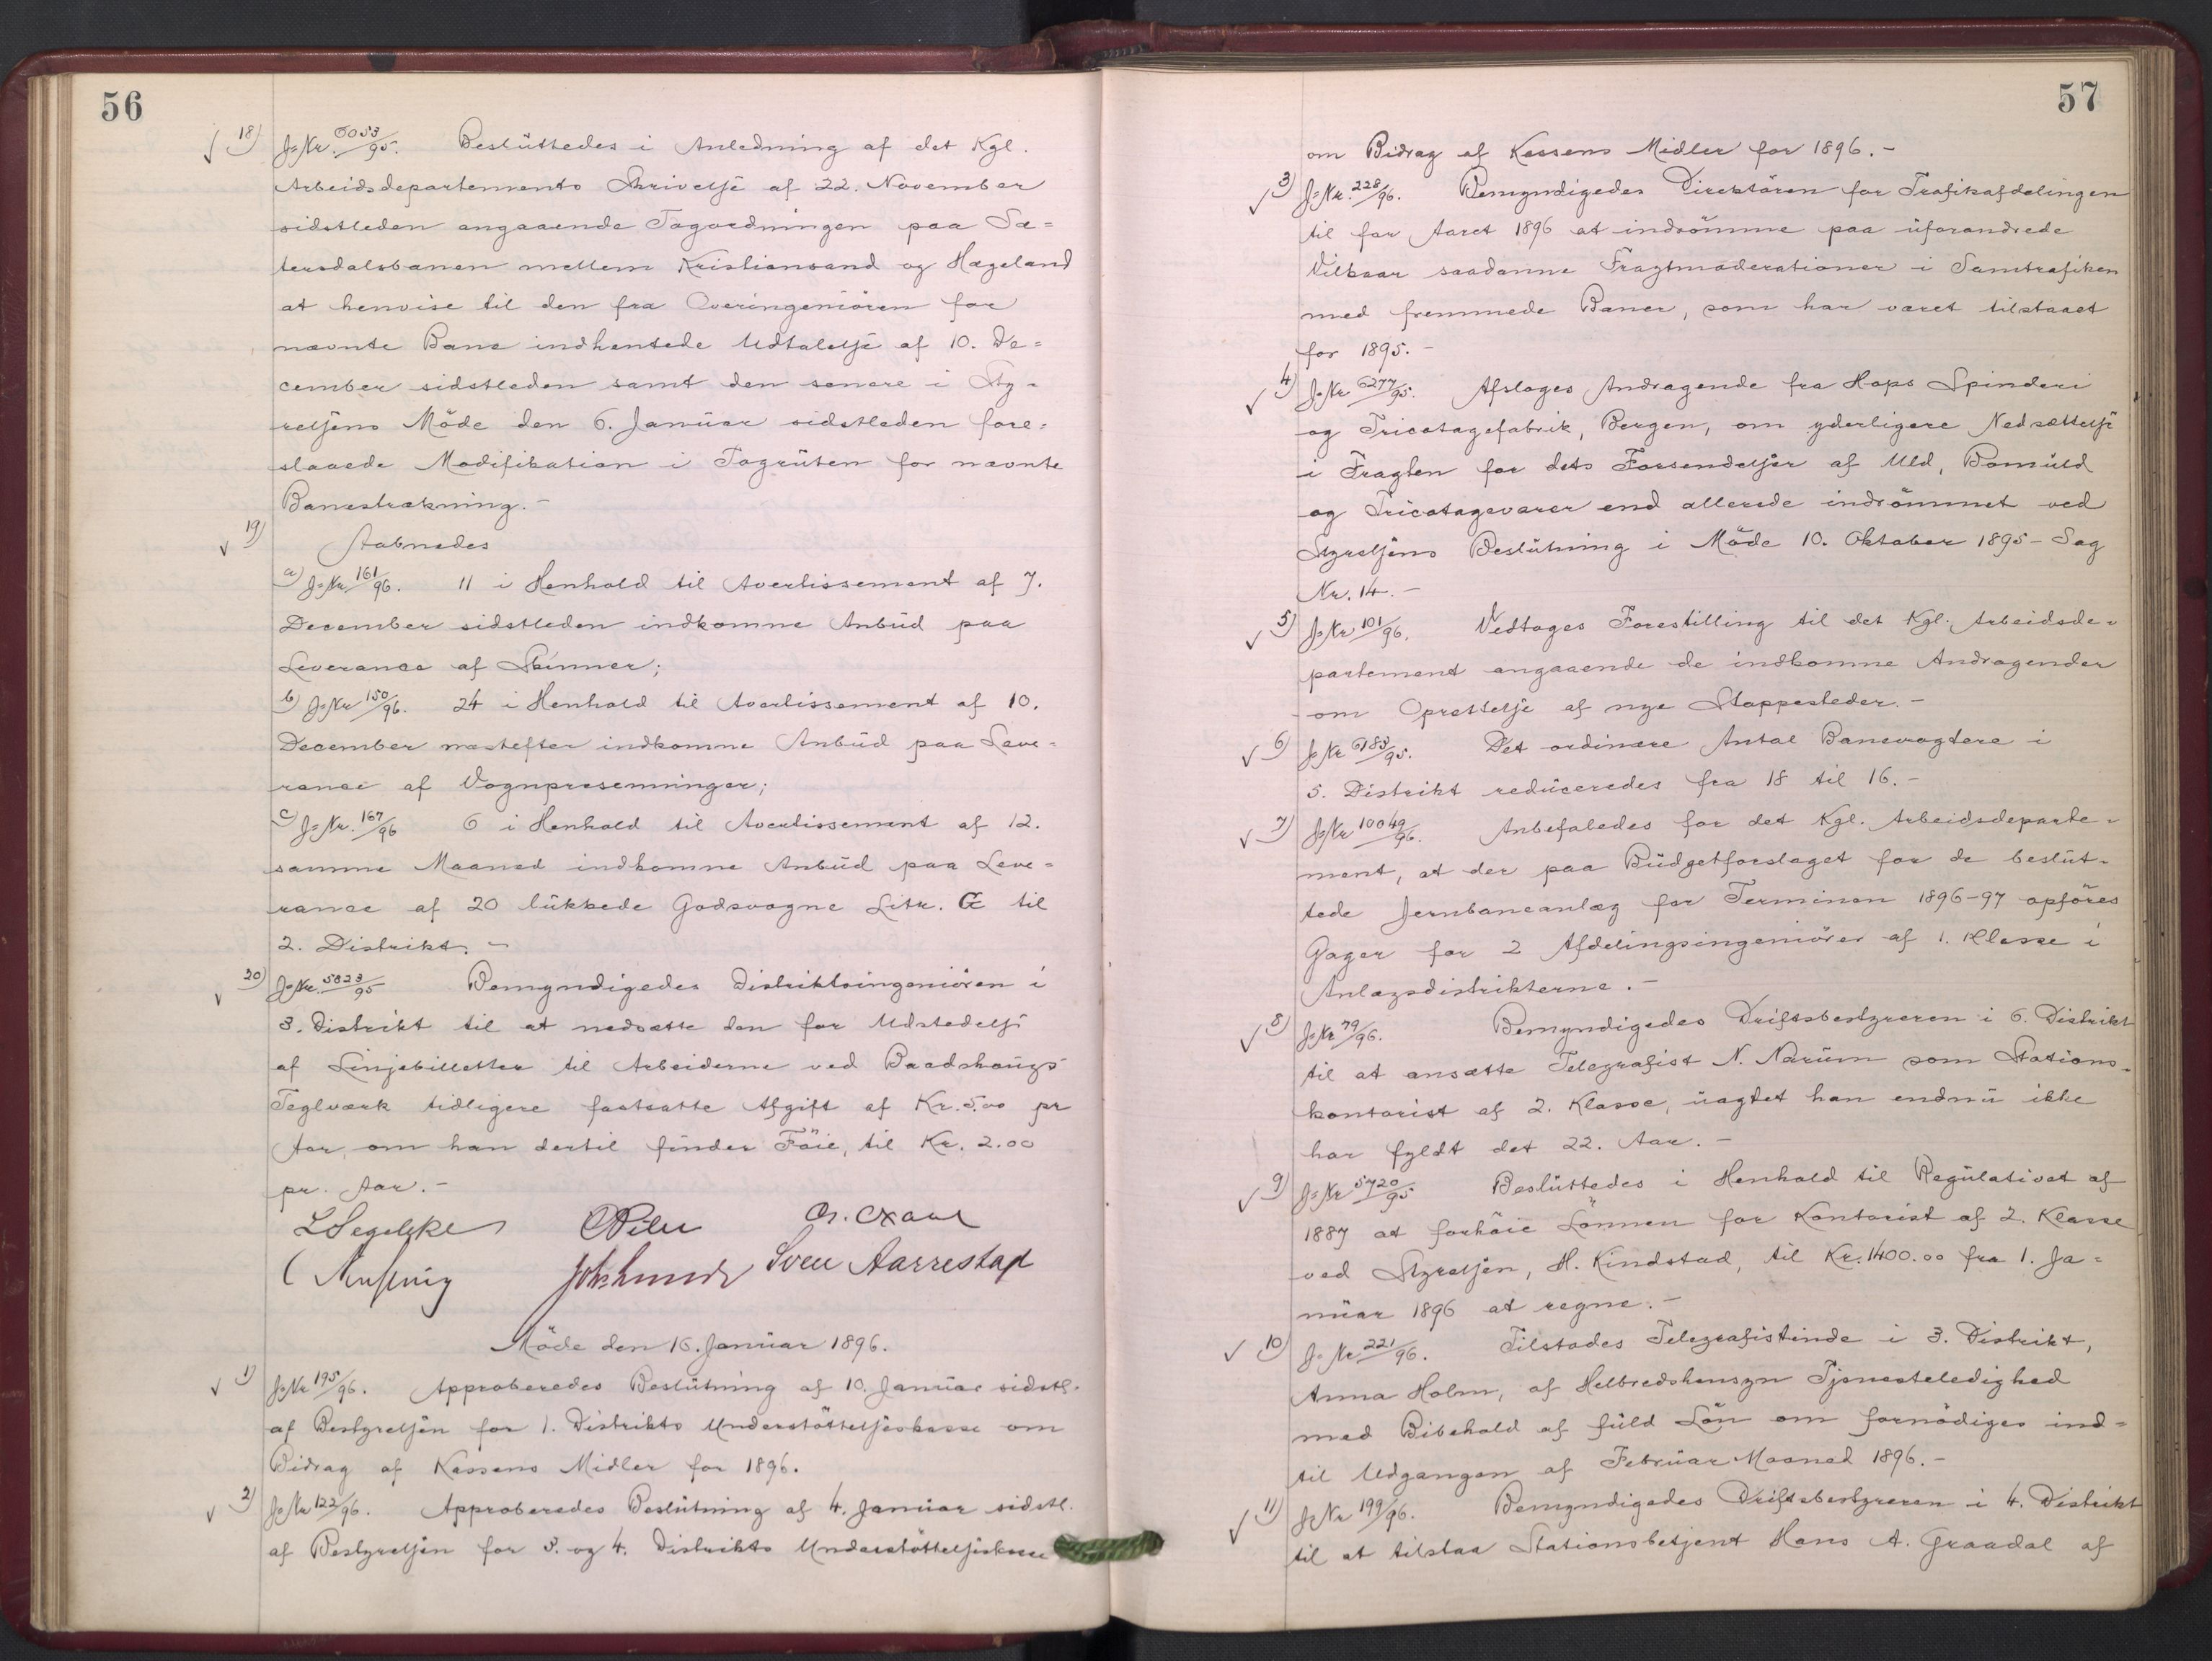 56
18) J=Nr. 6053/95. Besluttedes i Anledning af det Kgl.
Arbeidsdepartements Skrivelse af 22. November
sidstleden angaaende Togordningen paa Sæ=
tersdalsbanen mellem Kristianssand og Hægeland
at henvise til den fra Overingeniören for
nævnte Bane indhentede Udtalelse af 10. De=
cember sidstleden samt den senere i Sty=
relsens Möde den 6. Januar sidstleden fore=
slaaede Modifikation i Togruten for nævnte
Banestrækning.-
19) Aabnedes
a) J=Nr. 161/96. 11 i Henhold til Avertissement af 7.
December sidstleden indkomne Anbud paa
Leverance af Skinner;
b) J=Nr 150/96. 24 i Henhold til Avertissement af 10.
December næstefter indkomne Anbud paa Leve=
rance af Vognpresenninger;
c) J=Nr. 167/96 6 i Henhold til Avertissement af 12.
samme Maaned indkomne Anbud paa Leve=
rance af 20 lukkede Godsvogne Litr. G til
2. Distrikt.-
20) J=Nr. 5823/95 Bemyndigedes Distriktsingeniören i
3. Distrikt til at nedsætte den for Udstedelse
af Linjebilletter til Arbeiderne ved Baadshaugs
Teglværk tidligere fastsatte Afgift af Kr. 5.00 pr
Aar, om han dertil finder Föie, til Kr. 2.00
pr. Aar.-
LSegelcke CPihl
Sven Aarrestad
Möde den 16. Januar 1896.
1) J=Nr 195/96. Approberedes Beslutning af 10. Januar sidstl.
af Bestyrelsen for 1. Distrikts Understöttelseskasse om
Bidrag af Kassens Midler for 1896.
2) J=Nr 122/96. Approberedes Beslutning af 4. Januar sidstl.
af Bestyrelsen for 3. og 4. Distrikts Understöttelseskasse
57
om Bidrag af Kassens Midler for 1896.-
3) J=Nr. 228/96. Bemyndigedes Direktören for Trafikafdelingen
til for Aaret 1896 at indrömme paa uforandrede
Vilkaar saadanne Fragtmoderationer i Samtrafiken
med fremmede Baner, som har været tilstaaet
for 1895.-
4) J=Nr 6277/95. Afsloges Andragende fra Hops Spinderi
og Tricotagefabrik, Bergen, om yderligere Nedsættelse
i Fragten for dets Forsendelser af Uld, Bomuld
og Tricotagevarer end allerede indrömmet ved
Styrelsens Beslutning i Möde 10. Oktober 1895 - Sag
Nr. 14.-
5) J=Nr 101/96. Vedtoges Forestilling til det Kgl. Arbeidsde=
partement angaaende de indkomne Andragender
om Oprettelse af nye Stoppesteder.-
6) J=Nr 6183/95. Det ordinære Antal Banevogtere i
5. Distrikt reduceredes fra 18 til 16.-
7) J=Nr 10049/96. Anbefaledes for det Kgl. Arbeidsdeparte=
ment, at der paa Budgetforslaget for de beslut=
tede Jernbaneanlæg for Terminen 1896-97 opföres
Gager for 2 Afdelingsingeniörer af 1. Klasse i
Anlægsdistrikterne.-
8) J=Nr 79/96. Bemyndigedes Driftsbestyreren i 6. Distrikt
til at ansætte Telegrafist N. Narum som Stations=
kontorist af 2. Klasse, uagtet han endnu ikke
har fyldt det 22. Aar.-
9) J=Nr 5720/95 Besluttedes i Henhold til Regulativet af
1887 at forhöie Lönnen for Kontorist af 2. Klasse
ved Styrelsen, H. Kindstad, til Kr. 1400.00 fra 1. Ja=
nuar 1896 at regne.-
10) J=Nr 221/96. Tilstodes Telegrafistinde i 3. Distrikt,
Anna Holm, af Helbredshensyn Tjenesteledighed
med Bibehold af fuld Lön om fornödiges ind=
til Udgangen af Februar Maaned 1896.-
11) J=Nr 199/96. Bemyndigedes Driftsbestyreren i 4. Distrikt
til at tilstaa Stationsbetjent Hans A. Graadal af